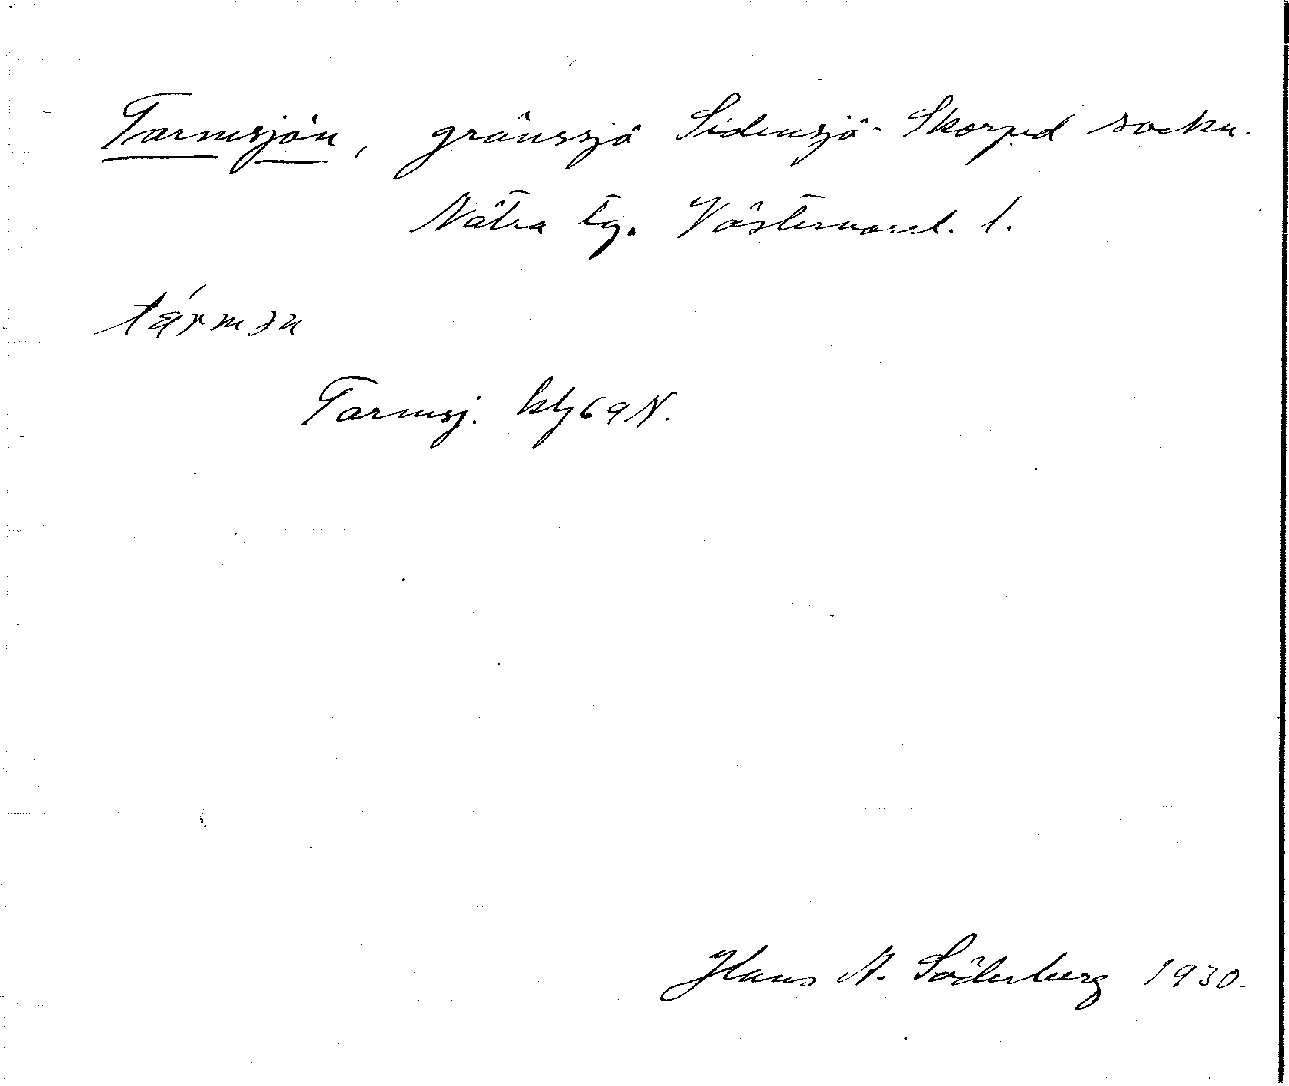 Tarmsjön, gränssjö Sidensjö - Skorped sockn.
Nätra tg. Västernorrl. l.
tármən
Tarmsj. kbl 69 N.
Hans A. Söderberg 1930.